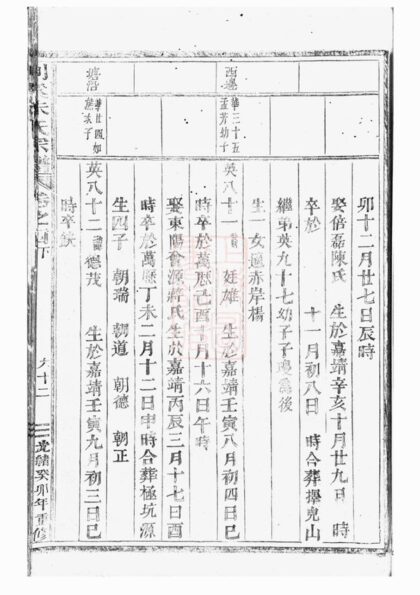 卯十二月廿七日辰時
娶倍磊陳氏 生於嘉靖辛亥十月廿九日 時
卒於 十一月初八日 時合葬舉兒山
繼弟英九十七幼子子
生一女適赤岸楊
西邊
華三十五
孟芳幼子
英八十一 廷雄 生於嘉靖壬寅八月初四日巳
時卒於萬曆己酉十月十六日午時
娶東陽會源蔣氏生於嘉靖丙辰三月十七日酉
時卒於萬曆丁未二月十二日申時合葬極坑源
生四子 朝瑞 朝道 朝德 朝正
塘沿
華廿四
次子
英八十二 德茂 生於嘉靖壬寅九月初三日巳
時卒缺
朱氏宗譜
九十二
光緒癸卯年重修